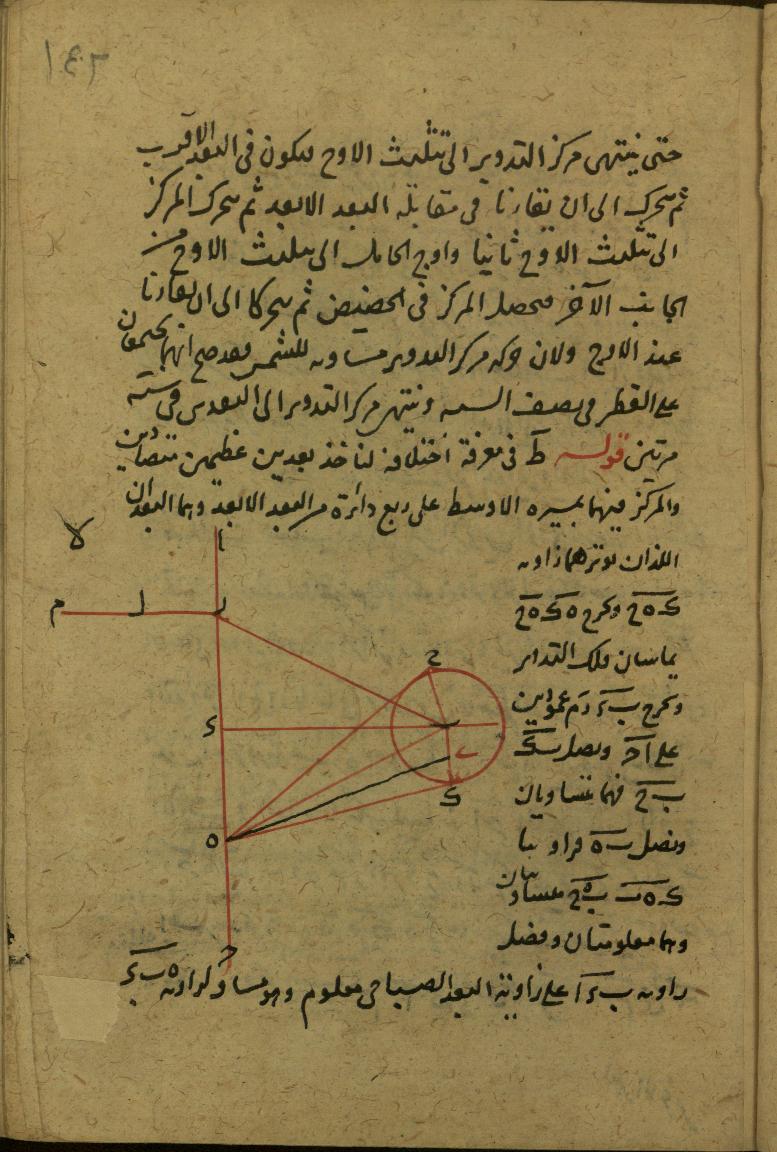 ١٤٣
حتى ينتهى مركز التدوير الى تثليث الاوج فيكون فى البعد الاقرب
ثم يتحرك الى ان يقارنا فى مقابلة البعد الابعد ثم يتحرك المركز
الى تثليث الاوج ثانيا واوج الحامل الى تثليث الاوج من
الجانب الآخر فيحصل المركز فى الحضيض ثم يتحركا الى ان يقارنا
عند الاوج ولان حركة مركز التدوير مساوية للشمس فقد صح انهما يجتمعان
على القطر فى نصف السنة وينتهى مركز التدوير الى البعدين فى سنة
مرتين قوله ط فى معرفة اختلافه لناخذ بعدين عظيمين متضادين
والمركز فيهما بمسيره الاوسط على ربع دائرة من البعد الابعد وهما البعدان
اللذان يوترهما زاوية
ك ه ح ونخرج ه ك ه ح
يماسان فلك التدوير
ونخرج ب ء ر م عمودين
على ا ح ونصل ب ك
ب ح فهما متساويان
ونصل ب ه فزاويتا
ك ه ب ب ه ح متساويتان
وهما معلومتان وفضل
زاوية ب ء ا على زاوية البعد الصباحى معلوم وهو مساو لزاوية ه ب ء
ا
م
ل
ر
ح
ب
ء
ك
ه
ح